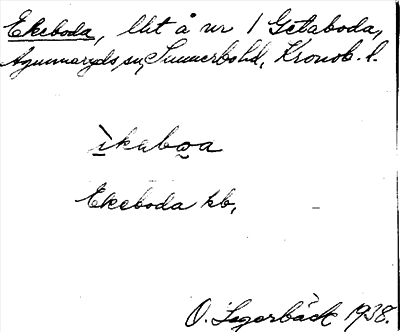 Ekeboda, llit å nr 1 Getaboda,
Agunnaryds sn, Sunnerbo hd, Kronob. l.
ìkaboa
Ekeboda kb,
O. Lagerbäck 1938.